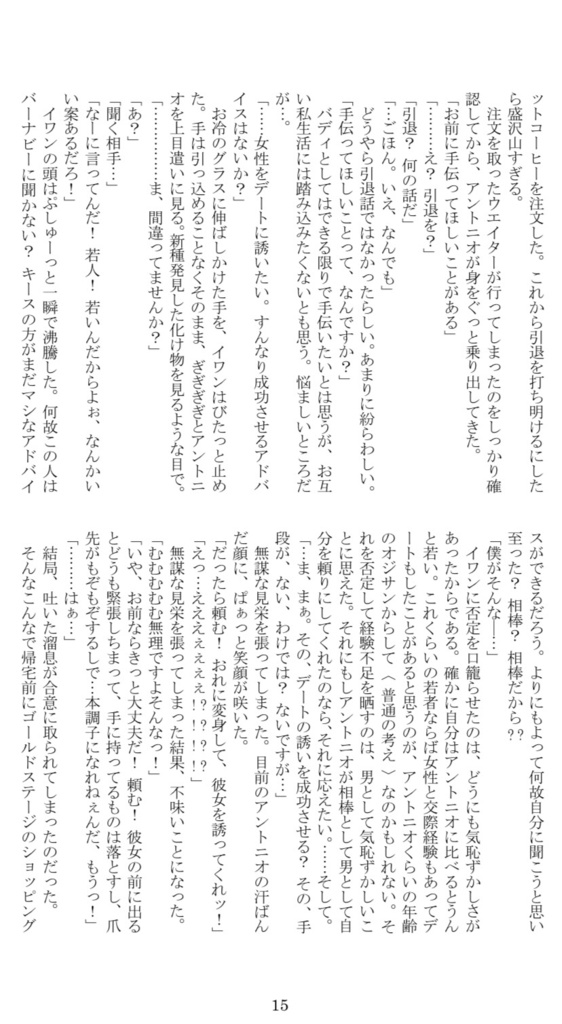 ットコーヒーを注文した。これから引退を打ち明けるにした
ら盛沢山すぎる。
　注文を取ったウエイターが行ってしまったのをしっかり確
認してから、アントニオが身をぐっと乗り出してきた。
「お前に手伝ってほしいことがある」
「………え？　引退を？」
「引退？　何の話だ」
「…ごほん。いえ、なんでも」
　どうやら引退話ではなかったらしい。あまりに紛らわしい。
「手伝ってほしいことって、なんですか？」
　バディとしてはできる限りで手伝いたいとは思うが、お互
い私生活には踏み込みたくないとも思う。悩ましいところだ
が…。
「……女性をデートに誘いたい。すんなり成功させるアドバ
イスはないか？」
　お冷のグラスに伸ばしかけた手を、イワンはぴたっと止め
た。手は引っ込めることなくそのまま、ぎぎぎぎとアントニ
オを上目遣いに見る。新種発見した化け物を見るような目で。
「……………ま、間違ってませんか？」
「あ？」
「聞く相手…」
「なーに言ってんだ！　若人！　若いんだからよぉ、なんかい
い案あるだろ！」
　イワンの頭はぷしゅーっと一瞬で沸騰した。何故この人は
バーナビーに聞かない？　キースの方がまだマシなアドバイ
スができるだろう。よりにもよって何故自分に聞こうと思い
至った？　相棒？　相棒だから??
「僕がそんな――…」
　イワンに否定を口籠らせたのは、どうにも気恥ずかしさが
あったからである。確かに自分はアントニオに比べるとうん
と若い。これくらいの若者ならば女性と交際経験もあってデ
ートもしたことがあると思うのが、アントニオくらいの年齢
のオジサンからして〈普通の考え〉なのかもしれない。そ
れを否定して経験不足を晒すのは、男として気恥ずかしいこ
とに思えた。それにもしアントニオが相棒として男として自
分を頼りにしてくれたのなら、それに応えたい。……そして。
「…ま、まぁ。その、デートの誘いを成功させる？　その、手
段が、ない、わけでは？　ないですが…」
　無謀な見栄を張ってしまった。目前のアントニオの汗ばん
だ顔に、ぱぁっと笑顔が咲いた。
「だったら頼む！　おれに変身して、彼女を誘ってくれッ！」
「えっ…えええぇぇぇぇ！？！？！？！？」
　無謀な見栄を張ってしまった結果、不味いことになった。
「むむむむむ無理ですよそんなっ！」
「いや、お前ならきっと大丈夫だ！　頼む！　彼女の前に出る
とどうも緊張しちまって、手に持ってるものは落とすし、爪
先がもぞもぞするしで…本調子になれねぇんだ、もうっ！」
「………はぁ…」
　結局、吐いた溜息が合意に取られてしまったのだった。
　そんなこんなで帰宅前にゴールドステージのショッピング
15